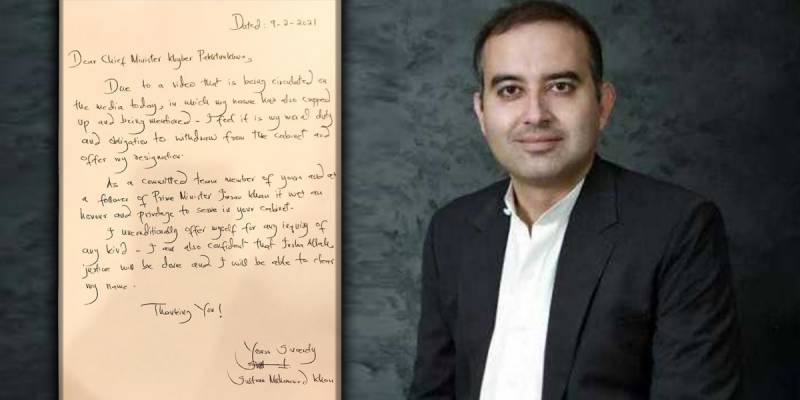 Dated: 9-2-2021
Dear Chief Minister Khyber Pakhtunkhwa,
Due to a video that is being circulated on
the media today, in which my name has also cropped
up and being mentioned - I feel it is my moral duty
and obligation to withdraw from the cabinet and
offer my resignation.
As a committed team member of yours and as
a follower of Prime Minister Imran Khan it was an
honour and privilege to serve in your cabinet.
I unconditionally offer myself for any inquiry of
any kind - I am also confident that Insha Allah
justice will be done and I will be able to clear
my name.
Thanking You!
Yours Sincerely
Sultan Mohammad Khan